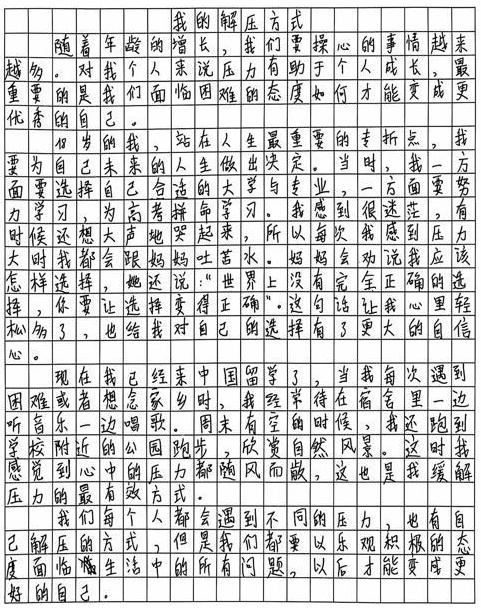 我的解压方式
随着年龄的增长，我们要操心的事情越来
越多。对我个人来说压力有助于个人成长，最
重要的是我们面临困难的态度如何才能变成更
优秀的自己。
18岁的我，站在人生最重要的专折点，我
要为自己未来的人生做出决定。当时，我一方
面要选择自己合适的大学与专业，一方面要努
力学习，为高考拼命学习。我感到很迷茫，有
时候还想大声地哭起来，所以每次我感到压力
大时我都会跟妈妈吐苦水。妈妈会劝说我应该
怎样选择，她还说：“世界上没有完全正确的选
择，你要让选择变得正确”。这句话让我心里轻
松多了，也给我对自己的选择有了更大的自信
心。
现在我已经来中国留学了，当我每次遇到
困难或者想念家乡时，我经常待在宿舍里一边
听音乐一边唱歌。周末有空的时候，我还跑到
学校附近的公园跑步，欣赏自然风景。这时我
感觉到心中的压力都随风而散，这也是我缓解
压力的最有效方式。
我们每个人都会遇到不同的压力，也有自
己解压的方式，但是我们都要以乐观积极的态
度面临生活中的所有问题，以后才能变成更
好的自己。